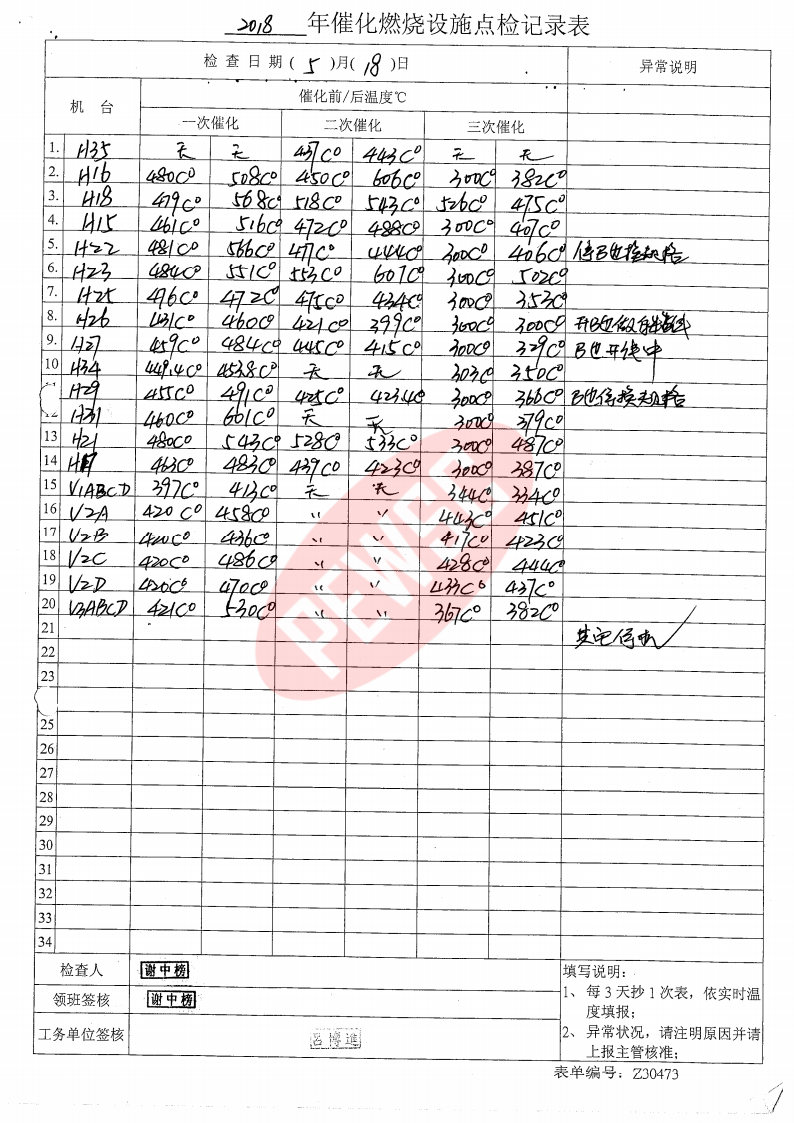 2018 年催化燃烧设施点检记录表
检查日期(5)月(18)日 异常说明
机 台 催化前/后温度℃
一次催化 二次催化 三次催化
1. H35 无 无 437C° 443C° 无 无
2. H16 480C° 508C° 450C° 606C° 300C° 382C°
3. H18 479C° 568C° 518C° 543C° 526C° 475C°
4. H15 461C° 516C° 472C° 488C° 300C° 407C°
5. H22 481C° 566C° 471C° 444C° 300C° 406C°
6. H23 484C° 551C° 553C° 607C° 300C° 502C°
7. H25 476C° 472C° 475C° 434C° 300C° 353C°
8. H26 431C° 460C° 421C° 399C° 300C° 300C°
9. H27 459C° 484C° 445C° 415C° 300C° 329C° B也开线中
10 H34 449.4C° 453.8C° 无 无 303C° 350C°
H29 455C° 491C° 425C° 423.4C° 300C° 366C°
H31 460C° 601C° 无 无 300C° 379C°
13 H21 480C° 543C° 528C° 533C° 300C° 487C°
14 H17 463C° 483C° 439C° 423C° 300C° 387C°
15 V1ABCD 397C° 413C° 无 无 344C° 334C°
16 V2A 420C° 458C° 〃 〃 443C° 451C°
17 V2B 420C° 436C° 〃 〃 417C° 423C°
18 V2C 420C° 486C° 〃 〃 428C° 444C°
19 V2D 420C° 470C° 〃 〃 433C° 437C°
20 V3ABCD 421C° 530C° 〃 〃 367C° 382C°
21
22
23
25
26
27
28
29
30
31
32
33
34
PEWSC
检查人 谢中榜
领班签核 谢中榜
工务单位签核 吕博进
填写说明:
1、每3天抄1次表，依实时温
度填报;
2、异常状况，请注明原因并请
上报主管核准;
表单编号: Z30473